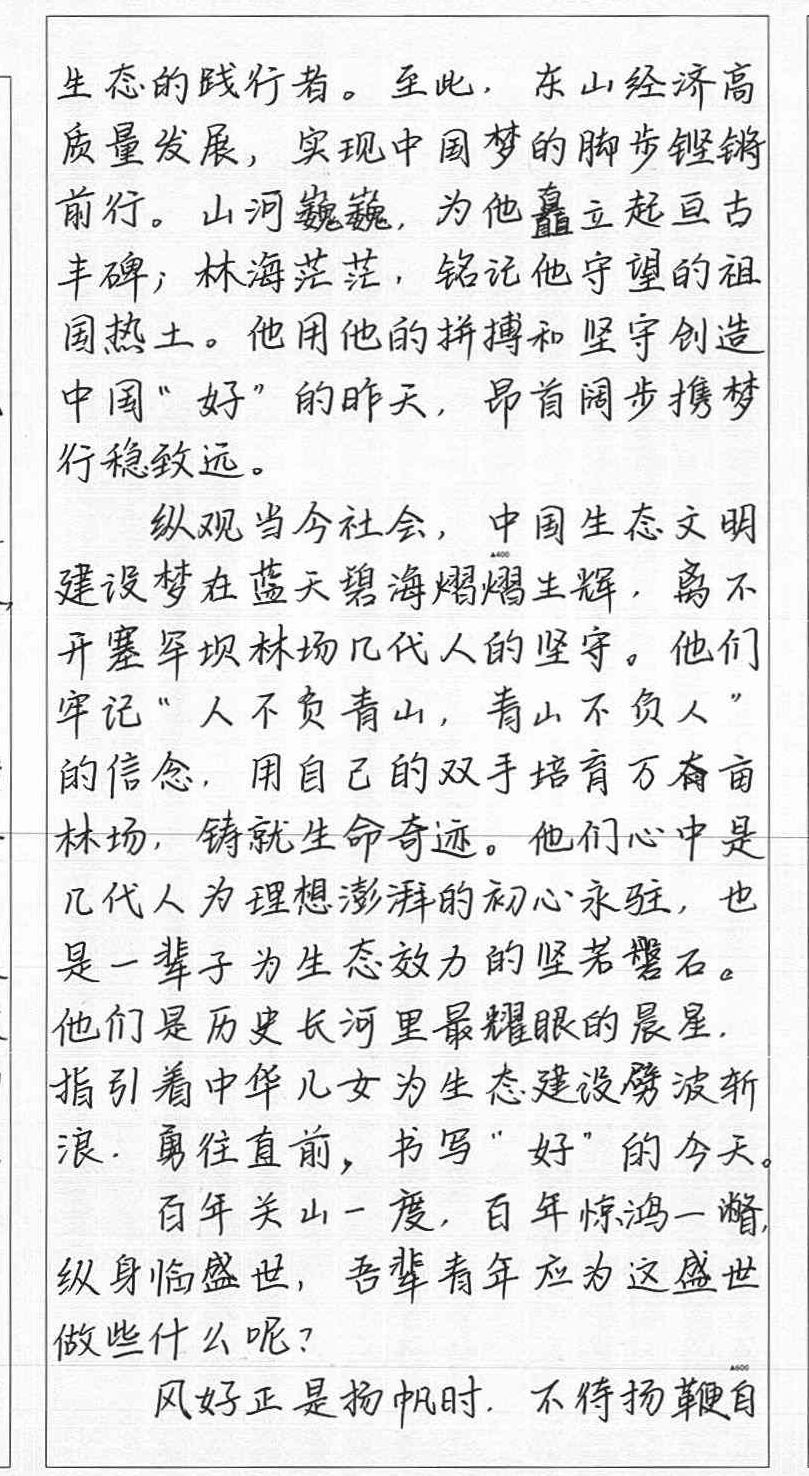 生态的践行者。至此，东山经济高
质量发展，实现中国梦的脚步铿锵
前行。山河巍巍，为他矗立起亘古
丰碑；林海茫茫，铭记他守望的祖
国热土。他用他的拼搏和坚守创造
中国“好”的昨天，昂首阔步携梦
行稳致远。
纵观当今社会，中国生态文明
▲400
建设梦在蓝天碧海熠熠生辉，离不
开塞罕坝林场几代人的坚守。他们
牢记“人不负青山，青山不负人”
的信念，用自己的双手培育万亩
林场，铸就生命奇迹。他们心中是
几代人为理想澎湃的初心永驻，也
是一辈子为生态效力的坚若磐石。
他们是历史长河里最耀眼的晨星，
指引着中华儿女为生态建设劈波斩
浪，勇往直前，书写“好”的今天。
百年关山一度，百年惊鸿一瞥，
纵身临盛世，吾辈青年应为这盛世
做些什么呢？
▲600
风好正是扬帆时，不待扬鞭自